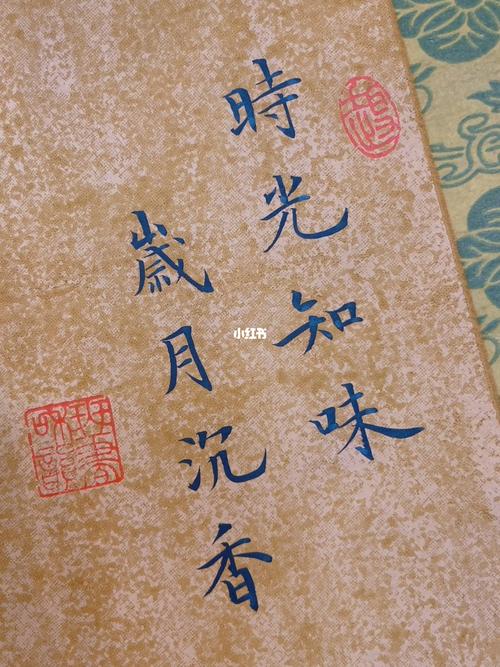 時光知味
歲月沉香
小红书